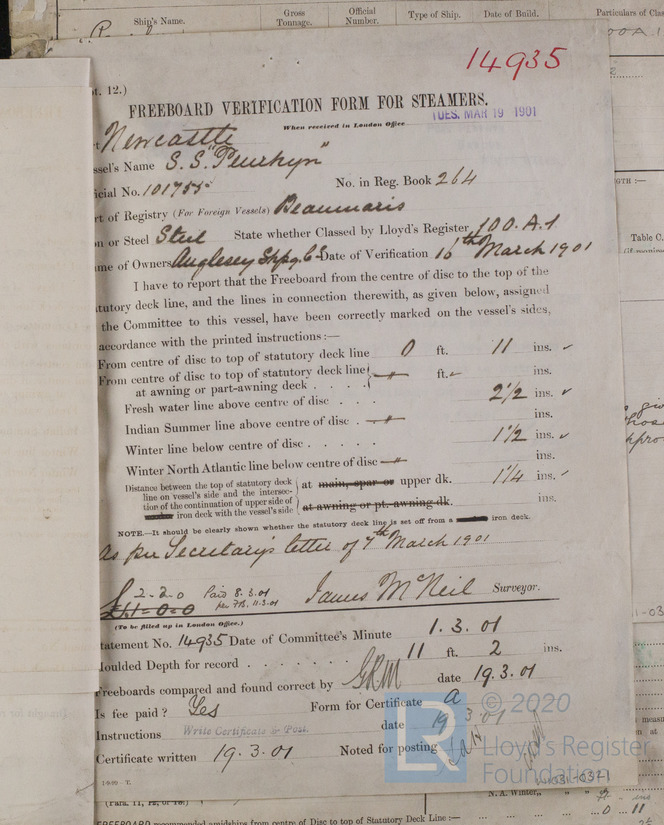 Ship's Name. Gross Tonnage. Official Number. Type of Ship. Date of Build. Particulars of Clas
14935
t. 12.)
FREEBOARD VERIFICATION FORM FOR STEAMERS.
When received in London Office TUES. MAR 19 1901
Newcastle
ssel's Name S.S. "Penrhyn"
icial No. 101755 No. in Reg. Book 264
rt of Registry (For Foreign Vessels) Beaumaris
on or Steel Steel State whether Classed by Lloyd's Register 100.A.1
me of Owners Anglesey Shpg. Co Date of Verification 16th March 1901
I have to report that the Freeboard from the centre of disc to the top of the
tutory deck line, and the lines in connection therewith, as given below, assigned
the Committee to this vessel, have been correctly marked on the vessel's sides,
accordance with the printed instructions:—
From centre of disc to top of statutory deck line 0 ft. 11 ins. ✓
From centre of disc to top of statutory deck line
at awning or part-awning deck . . . . — " — ft. ins.
Fresh water line above centre of disc . . . 2 1/2 ins. ✓
Indian Summer line above centre of disc . — " — ins.
Winter line below centre of disc . . . . . 1 1/2 ins. ✓
Winter North Atlantic line below centre of disc — " — ins.
Distance between the top of statutory deck
line on vessel's side and the intersec-
tion of the continuation of upper side of
iron deck with the vessel's side
at main, spar or upper dk. 1 1/4 ins. ✓
at awning or pt.-awning dk. ins.
NOTE.—It should be clearly shown whether the statutory deck line is set off from a iron deck.
As per Secretary's letter of 7th March 1901
£ 2-2-0 Paid 8.3.01
£1-0-0 per 7B. 11.3.01
James McNeil Surveyor.
(To be filled up in London Office.)
tatement No. 14935 Date of Committee's Minute 1.3.01
oulded Depth for record . . . . . . . 11 ft. 2 ins.
Freeboards compared and found correct by GRM date 19.3.01
Is fee paid? Yes Form for Certificate a
Instructions Write Certificate & Post. date 19 3.01
Certificate written 19.3.01 Noted for posting
© 2020
LR Lloyd's Register
Foundation
W1031-0321
N. A. Winter,
FREEBOARD recommended amidships from centre of Disc to top of Statutory Deck Line :— 0 11
Table C.